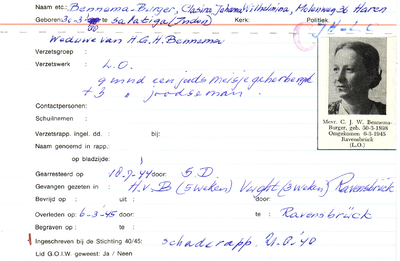 Naam etc.: Bennema-Burger, Clasina Johana Wilhelmina, Molenweg 36 Haren
Geboren: 30-3- te: Salatiga (Indën) Kerk: Politiek:
Weduwe van H.G.H. Bennema
Verzetsgroep :
Verzetswerk : L.O.
9 mnd een joods meisje geherbergd
+ 3 " joodse man.
Contactpersonen:
Schuilnamen :
Verzetsrapp. ingel. dd. : bij:
Naam genoemd in rapp.
op bladzijde:
Mevr. C. J. W. Bennema-
Burger, geb. 30-3-1898
Omgekomen 6-3-1945
Ravensbrück
(L.O.)
Gearresteerd op : 18-7-'44 door: S.D.
Gevangen gezeten in : H.v.B (5 weken) Vught (3 weken) Ravensbrück
Bevrijd op : uit door:
Overleden op : 6-3-'45 door: te : Ravensbrück
Begraven op : te :
Ingeschreven bij de Stichting 40/45: schaderapp.
Lid G.O.I.W. geweest: Ja / Neen